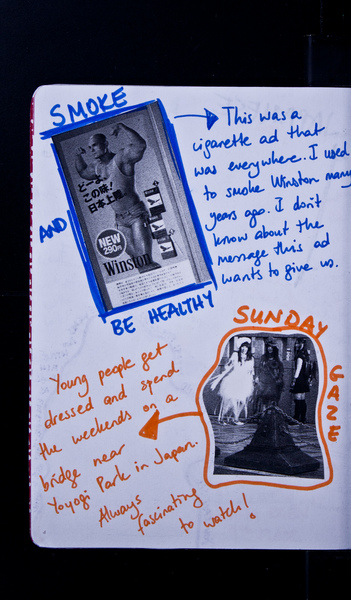 SMOKE
AND
BE HEALTHY
どーよ、
この味!
日本上陸
NEW
290円
Winston
This was a
cigarette ad that
was everywhere. I used
to smoke Winston many
years ago. I don't
know about the
message this ad
wants to give us.
SUNDAY
GAZE
Young people get
dressed and spend
the weekends on a
bridge near
Yoyogi Park in Japan.
Always
fascinating
to watch!